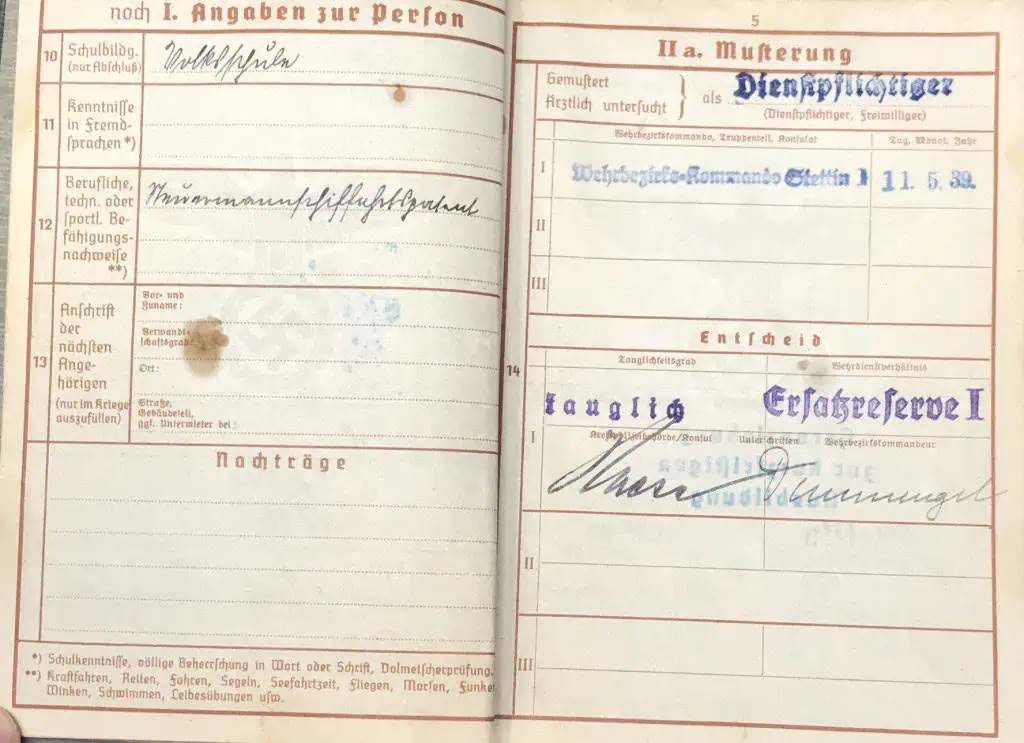 noch I. Angaben zur Person
10
Schulbildg.
(nur Abschluß)
Volksschule
11
Kenntnisse
in Fremd-
sprachen *)
12
Berufliche,
techn. oder
sportl. Be-
fähigungs-
nachweise
**)
13
Anschrift
der
nächsten
Ange-
hörigen
(nur im Kriege
auszufüllen)
Vor- und
Zuname:
Verwandt-
schaftsgrad:
Ort:
Straße,
Gebäudeteil,
ggf. Untermieter bei:
Nachträge
*) Schulkenntnisse, völlige Beherrschung in Wort oder Schrift, Dolmetscherprüfung.
**) Kraftfahren, Reiten, Fahren, Segeln, Seefahrtzeit, Fliegen, Morsen, Funke
Winken, Schwimmen, Leibesübungen usw.
5
II a. Musterung
Gemustert
Ärztlich untersucht } als Dienstpflichtiger
(Dienstpflichtiger, Freiwilliger)
Wehrbezirkskommando, Truppenteil, Konsulat
Tag, Monat, Jahr
I
Wehrbezirks-Kommando Stettin I
11. 5. 39.
II
III
Entscheid
14
Tauglichkeitsgrad
Wehrdienstverhältnis
tauglich
Ersatzreserve I
I
Kreispolizeibehörde/Konsul
Unterschriften
Wehrbezirkskommandeur
II
III